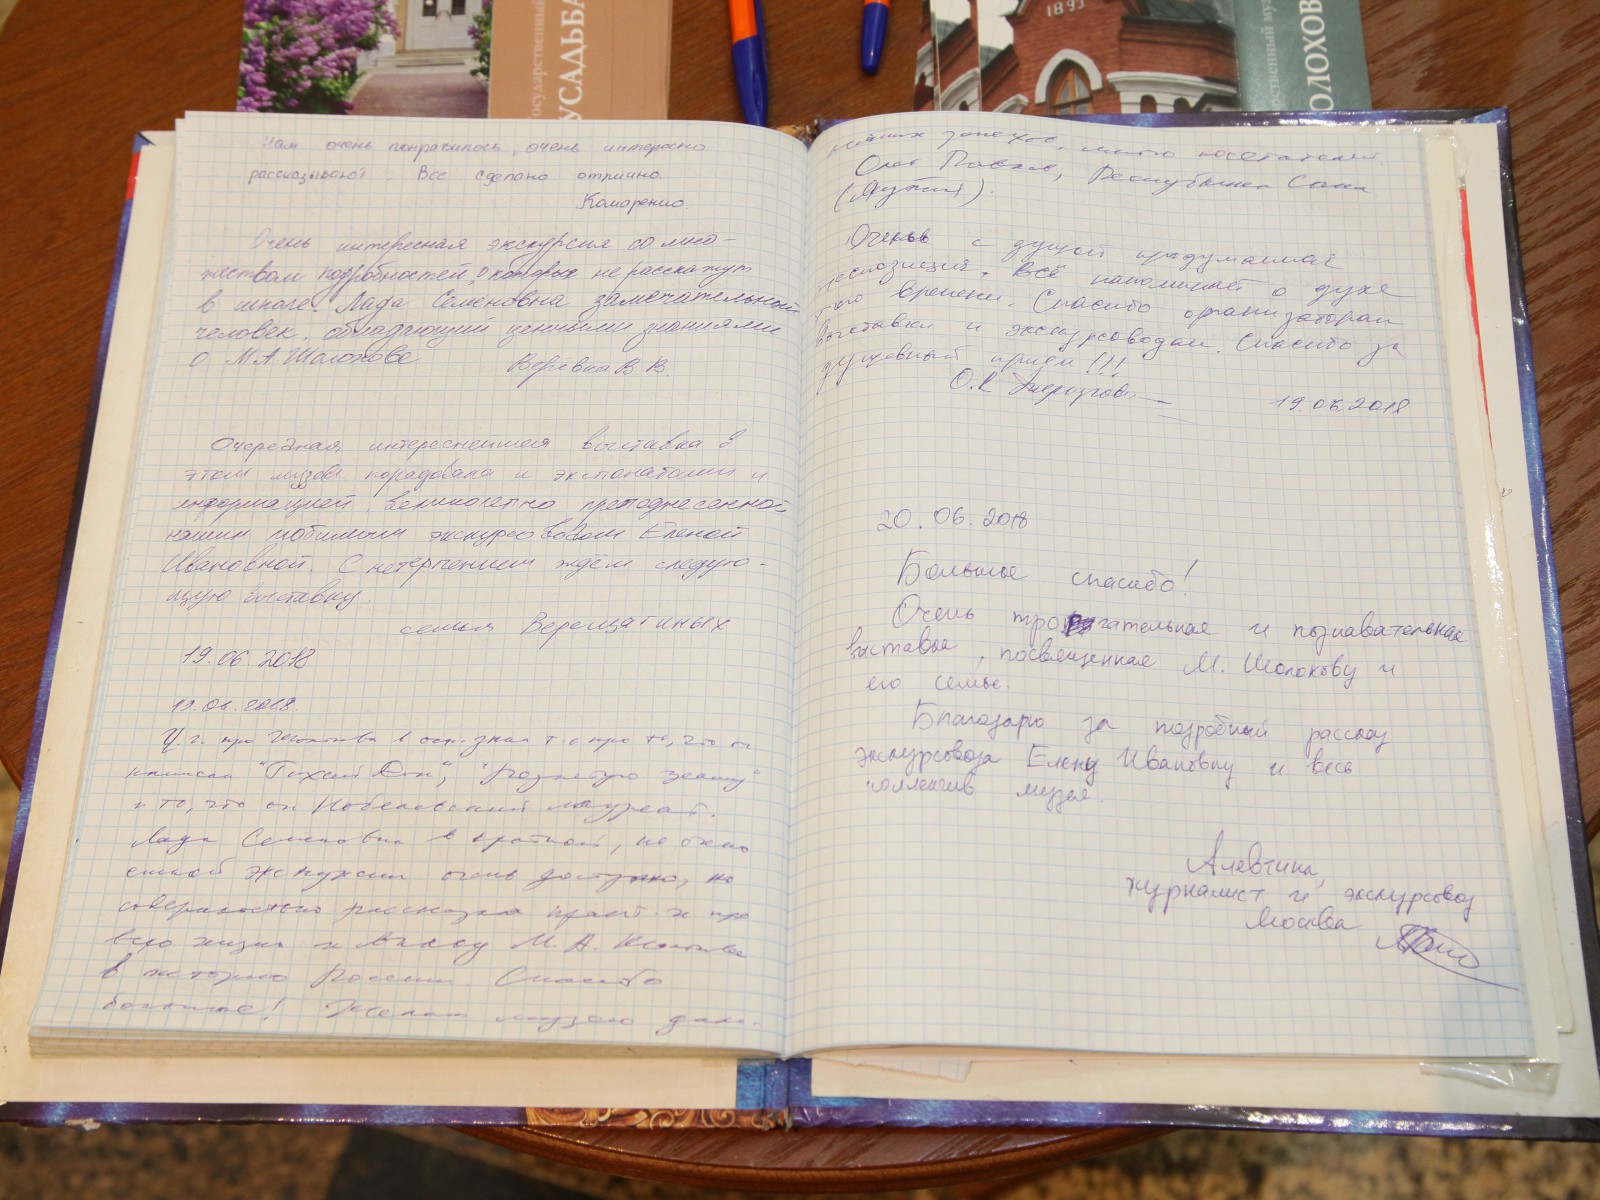 Государственный
УСАДЬБА
1893
Государственный муз
ОЛОХОВ
Нам очень понравилось, очень интересно
рассказывают. Все сделано отлично.
Комаренко.
Очень интересная экскурсия со мно-
жеством подробностей, о которых не расскажут
в школе. Лада Семеновна замечательный
человек, обладающий ценными знаниями
о М.А Шолохове
Веревка В. В.
Очередная интереснейшая выставка в
этом музее порадовала и экспонатами и
информацией великолепно преподнесенной
нашим любимым экскурсоводом Еленой
Ивановной. С нетерпением ждём следую-
щую выставку.
семья Верещагиных
19.06.2018
19.06.2018.
про то, что он
написал "Тихий Дон", "Поднятую целину"
и то, что он Нобелевский лауреат.
Лада Семеновна в краткой, но очень
ёмкой экскурсии очень доступно, но
совершенно рассказала про
всю жизнь и вклад М. А. Шолохова
в историю России. Спасибо
большое! Желаю музею даль-
нейших успехов, много посетителей.
Олег Павлов, Республика Саха
(Якутия).
Очень с душой придуманная
экспозиция. Всё напоминает о духе
того времени. Спасибо организаторам
выставки и экскурсоводам. Спасибо за
душевный приём!!!
О.К.
19.06.2018
20.06.2018
Большое спасибо!
Очень трогательная и познавательная
выставка, посвященная М. Шолохову и
его семье.
Благодарю за подробный рассказ
экскурсовода Елену Ивановну и весь
коллектив музея.
Алевтина,
журналист и экскурсовод
Москва